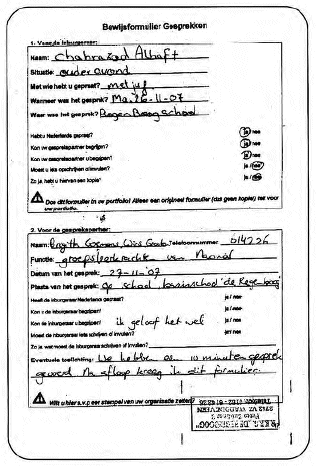 Bewijsformulier Gesprekken
1. Voor de inburgeraar:
Naam: Chahrazad Alhaft
Situatie: ouderavond
Met wie hebt u gepraat? met juf
Wanneer was het gesprek? Ma. 26-11-07
Waar was het gesprek? Regenboogschool
Hebt u Nederlands gepraat? ja / nee
Kon uw gesprekspartner u begrijpen? ja / nee
Kon u uw gesprekspartner begrijpen? ja / nee
Moest u iets opschrijven of invullen? ja / nee
Zo ja, hebt u hiervan een kopie? ja / nee
Doe dit formulier in uw portfolio! Alleen een origineel formulier (dus geen kopie) telt voor uw portfolio.
2. Voor de gesprekspartner:
Naam: Telefoonnummer: 014226
Functie: groepsleerkrachten van
Datum van het gesprek: 27-11-'07
Plaats van het gesprek: Op school, basisschool 'de Regenboog
Heeft de inburgeraar Nederlands gepraat? ja / nee
Kon u de inburgeraar begrijpen? ja / nee
Kon de inburgeraar u begrijpen? ik geloof het wel ja / nee
Moest de inburgeraar iets schrijven of invullen? ja / nee
Zo ja, wat moest de inburgeraar schrijven of invullen? ja / nee
Eventuele toelichting: We hebben een 10 minuten gesprek
gevoerd. Na afloop kreeg ik dit formulier.
Wilt u hier s.v.p. een stempel van uw organisatie zetten?